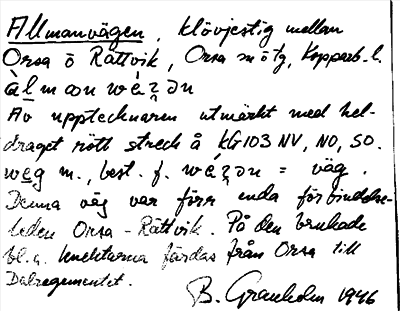 Allmanvägen, klövjestig mellan
Orsa o Rättvik, Orsa sn o tg, Kopparb. l.
àl m ωn wézən
Av upptecknaren utmärkt med hel-
draget rött streck å KG103 NV, NO, SO.
weg m., best. f. wézən = väg.
Denna väg var förr enda förbindelse-
leden Orsa - Rättvik. På den brukade
bl.a. knektarna färdas från Orsa till
Dalregementet.
B. Granholm 1946